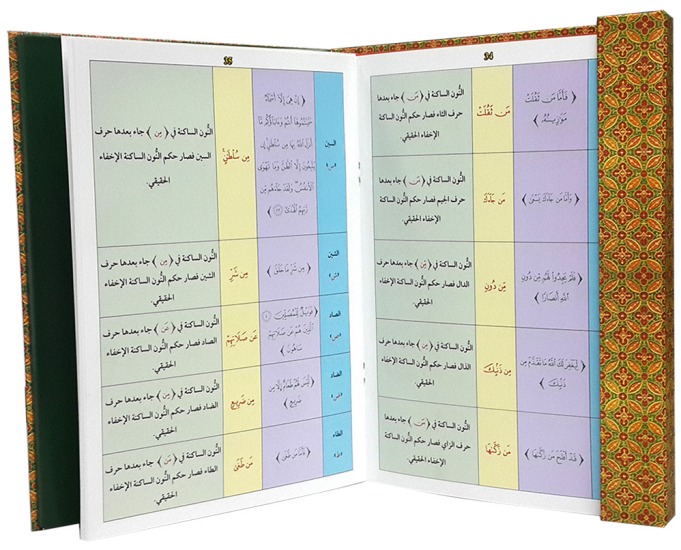 34
﴿ فَأَمَّا مَن ثَقُلَتْ
مَوَازِينُهُۥ ﴾
مَن ثَقُلَتْ
النُّون الساكنة في ﴿ مَن ﴾ جاء بعدها
حرف الثاء فصار حكم النُّون الساكنة
الإخفاء الحقيقي.
﴿ وَأَمَّا مَن جَآءَكَ يَسْعَىٰ ﴾
مَن جَآءَكَ
النُّون الساكنة في ﴿ مَن ﴾ جاء بعدها
حرف الجيم فصار حكم النُّون الساكنة
الإخفاء الحقيقي.
﴿ فَلَمْ يَجِدُوا۟ لَهُم مِّن دُونِ
ٱللَّهِ أَنصَارًا ﴾
مِن دُونِ
النُّون الساكنة في ﴿ مِن ﴾ جاء بعدها حرف
الدال فصار حكم النُّون الساكنة الإخفاء
الحقيقي.
﴿ لِّيَغْفِرَ لَكَ ٱللَّهُ مَا تَقَدَّمَ مِن
ذَنۢبِكَ ﴾
مِن ذَنۢبِكَ
النُّون الساكنة في ﴿ مِن ﴾ جاء بعدها حرف
الذال فصار حكم النُّون الساكنة الإخفاء
الحقيقي.
﴿ قَدْ أَفْلَحَ مَن زَكَّىٰهَا ﴾
مَن زَكَّىٰهَا
النُّون الساكنة في ﴿ مَن ﴾ جاء بعدها
حرف الزاي فصار حكم النُّون الساكنة
الإخفاء الحقيقي.
35
السين
«س»
﴿ إِنْ هِىَ إِلَّآ أَسْمَآءٌ
سَمَّيْتُمُوهَآ أَنتُمْ وَءَابَآؤُكُم مَّآ
أَنزَلَ ٱللَّهُ بِهَا مِن سُلْطَـٰنٍ إِن
يَتَّبِعُونَ إِلَّا ٱلظَّنَّ وَمَا تَهْوَى
ٱلْأَنفُسُ وَلَقَدْ جَآءَهُم مِّن
رَّبِّهِمُ ٱلْهُدَىٰٓ ﴿٢٣﴾ ﴾
مِن سُلْطَـٰنٍ
النُّون الساكنة في ﴿ مِن ﴾ جاء بعدها حرف
السين فصار حكم النُّون الساكنة الإخفاء
الحقيقي.
الشين
«ش»
﴿ مِن شَرِّ مَا خَلَقَ ﴾
مِن شَرِّ
النُّون الساكنة في ﴿ مِن ﴾ جاء بعدها حرف
الشين فصار حكم النُّون الساكنة الإخفاء
الحقيقي.
الصاد
«ص»
﴿ فَوَيْلٌ لِّلْمُصَلِّينَ ﴿٤﴾
ٱلَّذِينَ هُمْ عَن صَلَاتِهِمْ
سَاهُونَ ﴾
عَن صَلَاتِهِمْ
النُّون الساكنة في ﴿ عَن ﴾ جاء بعدها حرف
الصاد فصار حكم النُّون الساكنة الإخفاء
الحقيقي.
الضاد
«ض»
﴿ لَّيْسَ لَهُمْ طَعَامٌ إِلَّا مِن
ضَرِيعٍ ﴾
مِن ضَرِيعٍ
النُّون الساكنة في ﴿ مِن ﴾ جاء بعدها حرف
الضاد فصار حكم النُّون الساكنة الإخفاء
الحقيقي.
الطاء
«ط»
﴿ فَأَمَّا مَن طَغَىٰ ﴾
مَن طَغَىٰ
النُّون الساكنة في ﴿ مَن ﴾ جاء بعدها حرف
الطاء فصار حكم النُّون الساكنة الإخفاء
الحقيقي.